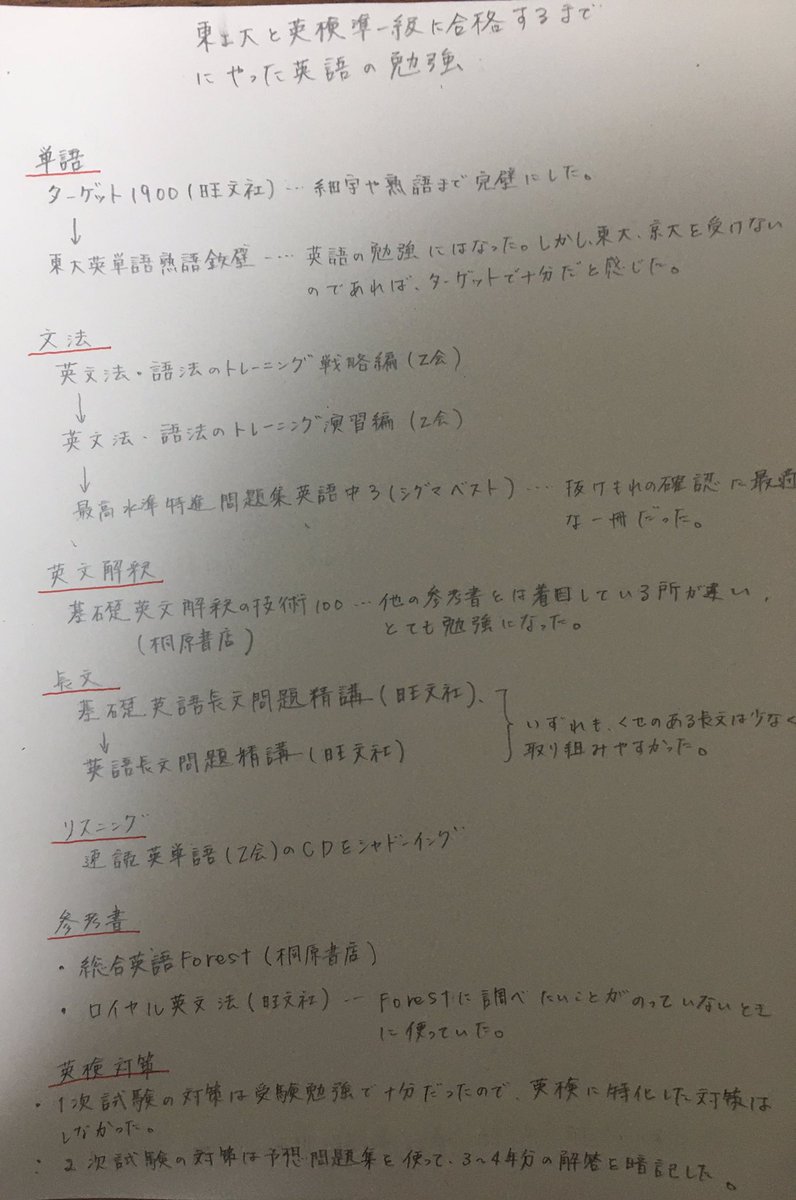 東工大と英検準一級に合格するまで
にやった英語の勉強
単語
ターゲット1900(旺文社)…細字や熟語まで完璧にした。
↓
東大英単語熟語鉄壁……英語の勉強にはなった。しかし、東大、京大を受けない
のであれば、ターゲットで十分だと感じた。
文法
英文法・語法のトレーニング戦略編(Z会)
↓
英文法・語法のトレーニング演習編(Z会)
↓
最高水準特進問題集英語中3(シグマベスト)…抜けもれの確認に最適
な一冊だった。
英文解釈
基礎英文解釈の技術100…他の参考書とは着目している所が違い、
(桐原書店) とても勉強になった。
長文
基礎英語長文問題精講(旺文社)、
↓
英語長文問題精講(旺文社)
いずれも、くせのある長文は少なく
取り組みやすかった。
リスニング
速読英単語(Z会)のCDをシャドーイング
参考書
・総合英語Forest(桐原書店)
・ロイヤル英文法(旺文社)…Forestに調べたいことがのっていないとき
に使っていた。
英検対策
・1次試験の対策は受験勉強で十分だったので、英検に特化した対策は
しなかった。
・2次試験の対策は予想問題集を使って、3~4年分の解答を暗記した。